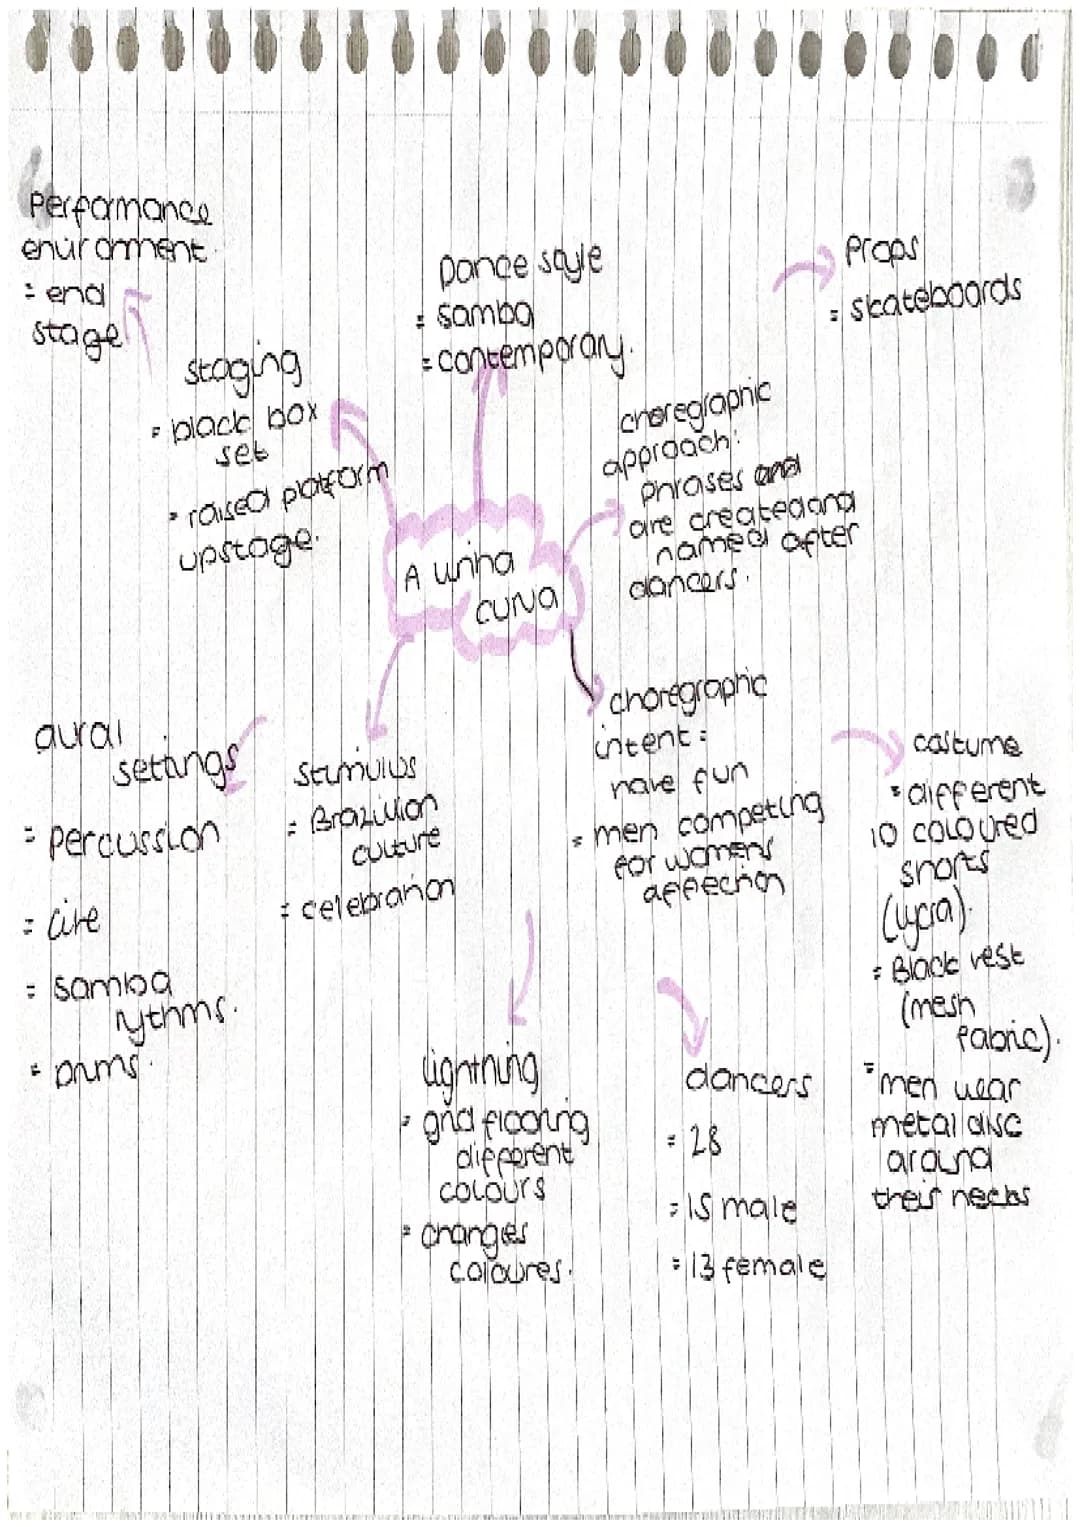 Performance
enviroment
= end
stage
staging
= black box
set
= raised platform
upstage.
Dance style
= samba
= contemporary.
Props
= skateboards
choregraphic
approach:
phrases and
are created and
named after
dancers.
A Linha
curva
choregraphic
intent =
have fun
= men competing
for womens
affection
costume
= different
10 coloured
shorts
(lycra).
= Black vest
(mesh
fabric).
= men wear
metal disc
around
their necks
aural
settings
= percussion
= live
= samba
rythms.
= Drums.
stimulus
= Brazilian
culture
= celebration
Lightning
= grid flooring
different
colours
= changes
coloures.
dancers
= 28
= 15 male
= 13 female